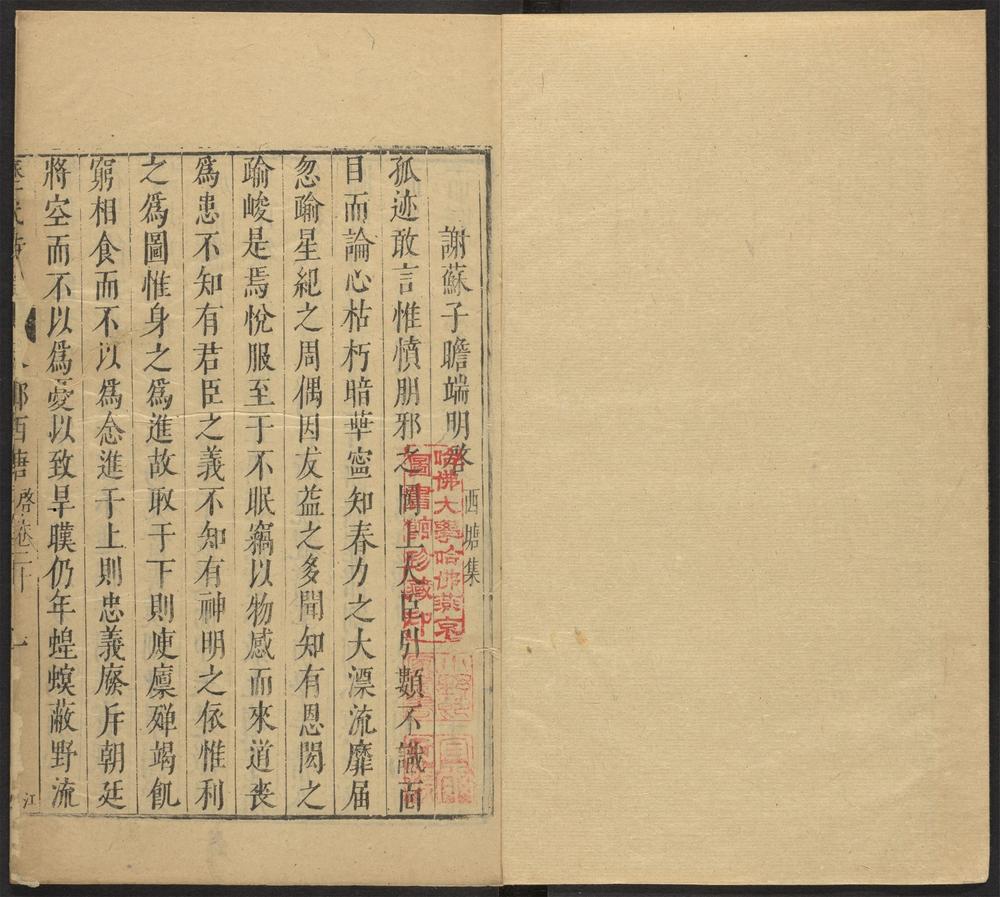 謝蘇子瞻端明啓 西塘集
孤迹敢言惟憤朋邪之罔上大臣引類不識面
目而論心枯朽暗華寧知春力之大漂流靡届
忽踰星紀之周偶因友益之多聞知有恩閎之
踰峻是焉悅服至于不眠竊以物感而來道喪
爲患不知有君臣之義不知有神明之依惟利
之爲圖惟身之爲進故取于下則庾廩殫竭飢
窮相食而不以爲念進于上則忠義廢斥朝廷
將空而不以爲憂以致旱暵仍年蝗螟蔽野流
西塘 啓卷二十 一
江
哈佛大學哈佛燕京
圖書館珍藏印